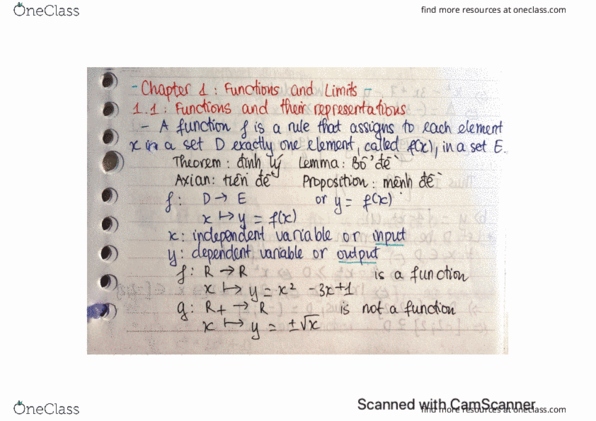 OneClass
find more resources at oneclass.com
- Chapter 1 : Functions and Limits -
1.1 : Functions and their representations
- A function f is a rule that assigns to each element
x in a set D exactly one element, called f(x), in a set E.
Theorem : định lý Lemma : Bổ đề
Axian : tiên đề Proposition : mệnh đề
f : D → E or y = f(x)
x ↦ y = f(x)
x : independent variable or input
y : dependent variable or output
f : R → R is a function
x ↦ y = x² - 3x + 1
g : R+ → R is not a function
x ↦ y = ±√x
Scanned with CamScanner
OneClass
find more resources at oneclass.com